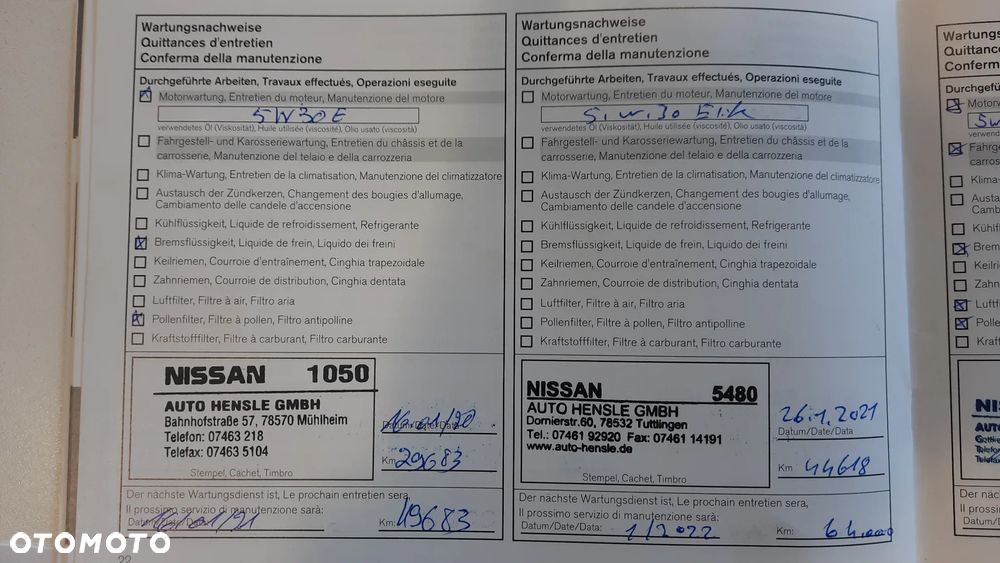 Wartungsnachweise
Quittances d'entretien
Conferma della manutenzione
Durchgeführte Arbeiten, Travaux effectués, Operazioni eseguite
Motorwartung, Entretien du moteur, Manutenzione del motore
5W30 E
verwendetes Öl (Viskosität), Huile utilisée (viscosité), Olio usato (viscosità)
Fahrgestell- und Karosseriewartung, Entretien du châssis et de la
carrosserie, Manutenzione del telaio e della carrozzeria
Klima-Wartung, Entretien de la climatisation, Manutenzione del climatizzatore
Austausch der Zündkerzen, Changement des bougies d'allumage,
Cambiamento delle candele d'accensione
Kühlflüssigkeit, Liquide de refroidissement, Refrigerante
Bremsflüssigkeit, Liquide de frein, Liquido dei freini
Keilriemen, Courroie d'entraînement, Cinghia trapezoidale
Zahnriemen, Courroie de distribution, Cinghia dentata
Luftfilter, Filtre à air, Filtro aria
Pollenfilter, Filtre à pollen, Filtro antipolline
Kraftstofffilter, Filtre à carburant, Filtro carburante
NISSAN 1050
AUTO HENSLE GMBH
Bahnhofstraße 57, 78570 Mühlheim
Telefon: 07463 218
Telefax: 07463 5104
Stempel, Cachet, Timbro
Datum/Date/Data
Km 29683
Der nächste Wartungsdienst ist, Le prochain entretien sera,
Il prossimo servizio di manutenzione sarà:
Datum/Date/Data:
Km: 49683
22
Wartungsnachweise
Quittances d'entretien
Conferma della manutenzione
Durchgeführte Arbeiten, Travaux effectués, Operazioni eseguite
Motorwartung, Entretien du moteur, Manutenzione del motore
verwendetes Öl (Viskosität), Huile utilisée (viscosité), Olio usato (viscosità)
Fahrgestell- und Karosseriewartung, Entretien du châssis et de la
carrosserie, Manutenzione del telaio e della carrozzeria
Klima-Wartung, Entretien de la climatisation, Manutenzione del climatizzatore
Austausch der Zündkerzen, Changement des bougies d'allumage,
Cambiamento delle candele d'accensione
Kühlflüssigkeit, Liquide de refroidissement, Refrigerante
Bremsflüssigkeit, Liquide de frein, Liquido dei freini
Keilriemen, Courroie d'entraînement, Cinghia trapezoidale
Zahnriemen, Courroie de distribution, Cinghia dentata
Luftfilter, Filtre à air, Filtro aria
Pollenfilter, Filtre à pollen, Filtro antipolline
Kraftstofffilter, Filtre à carburant, Filtro carburante
NISSAN 5480
AUTO HENSLE GMBH
Dornierstr.60, 78532 Tuttlingen
Tel.: 07461 92920 Fax: 07461 14191
www.auto-hensle.de
Stempel, Cachet, Timbro
26.1.2021
Datum/Date/Data
Km 44618
Der nächste Wartungsdienst ist, Le prochain entretien sera,
Il prossimo servizio di manutenzione sarà:
Datum/Date/Data: 1/2022
Km: 64.000
OTOMOTO